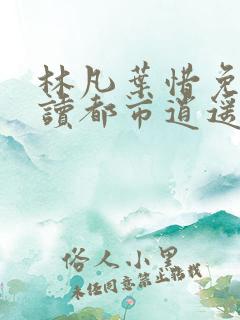 林凡葉惜免
讀都市逍遥
俗人小黑
未经同意禁止转载